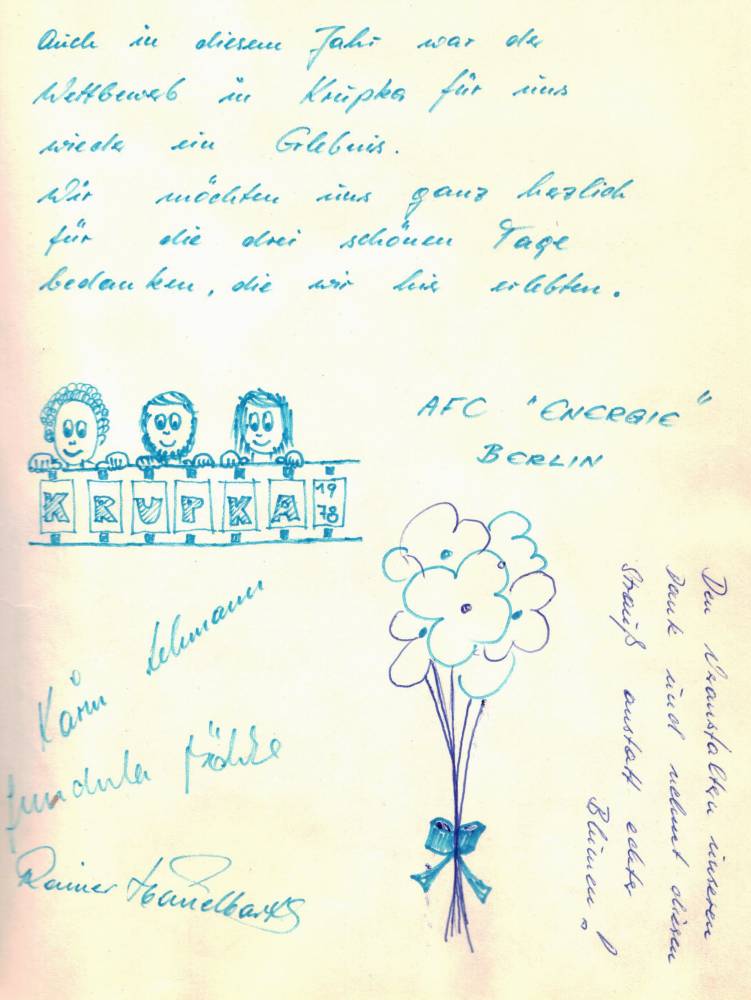 Auch in diesem Jahr war der
Wettbewerb in Krupka für uns
wieder ein Erlebnis.
Wir möchten uns ganz herzlich
für die drei schönen Tage
bedanken, die wir hier erlebten.
AFC "ENERGIE"
BERLIN
KRUPKA 19
78
Den Veranstaltern unseren
Dank und nehmt diesen
Strauß anstatt echter
Blumen!
Karin Lehmann
Gundula
Rainer